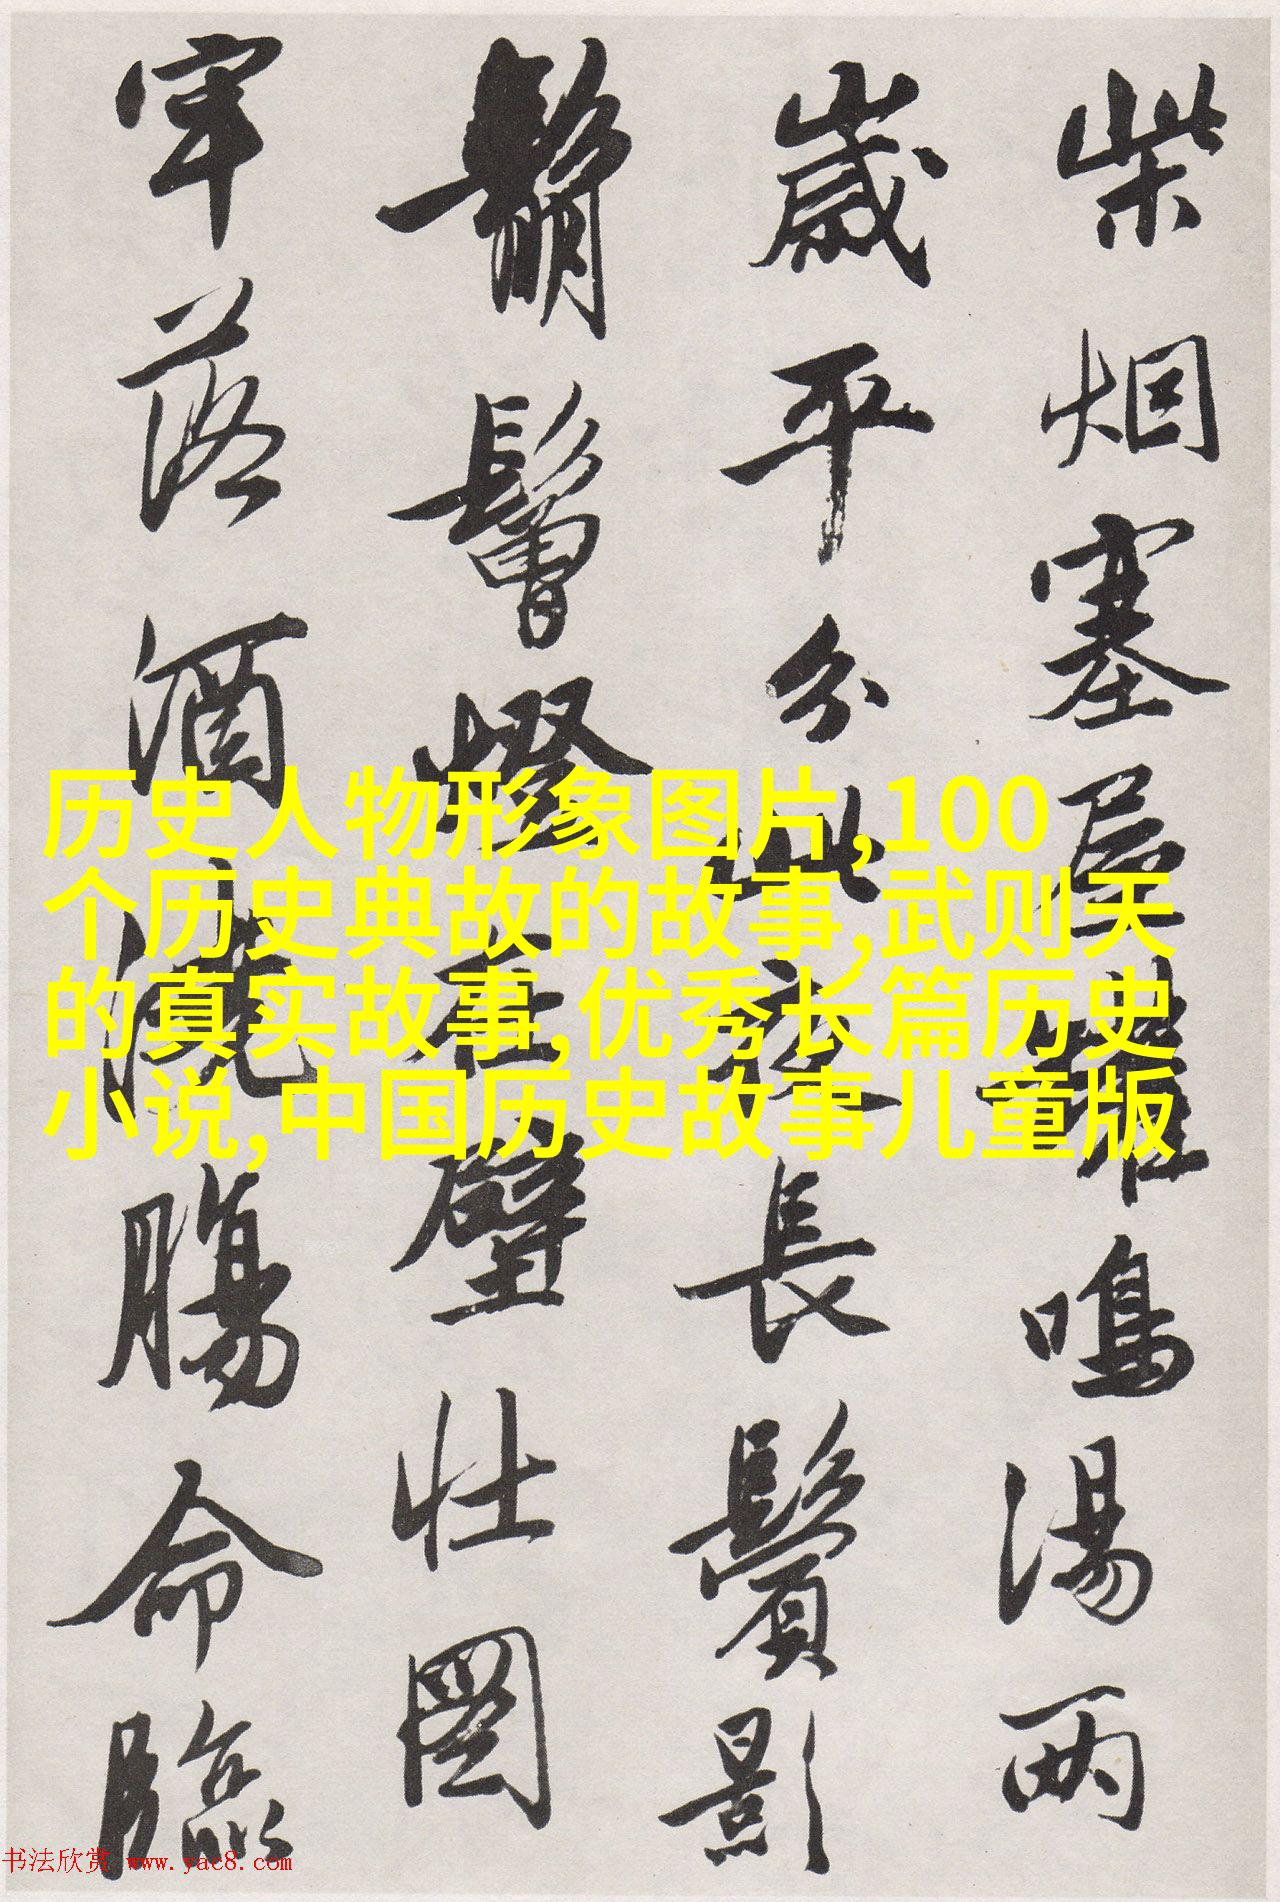 柴烟塞屋罐鳴湯两
歲平分此夜長鬢影
鬅鬙燈在壁壮圖
牢落酒澆腸命臨
历史人物形象图片,100
个历史典故的故事,武则天
的真实故事,优秀长篇历史
小说,中国历史故事儿童版
书法欣赏 www.yac8.com